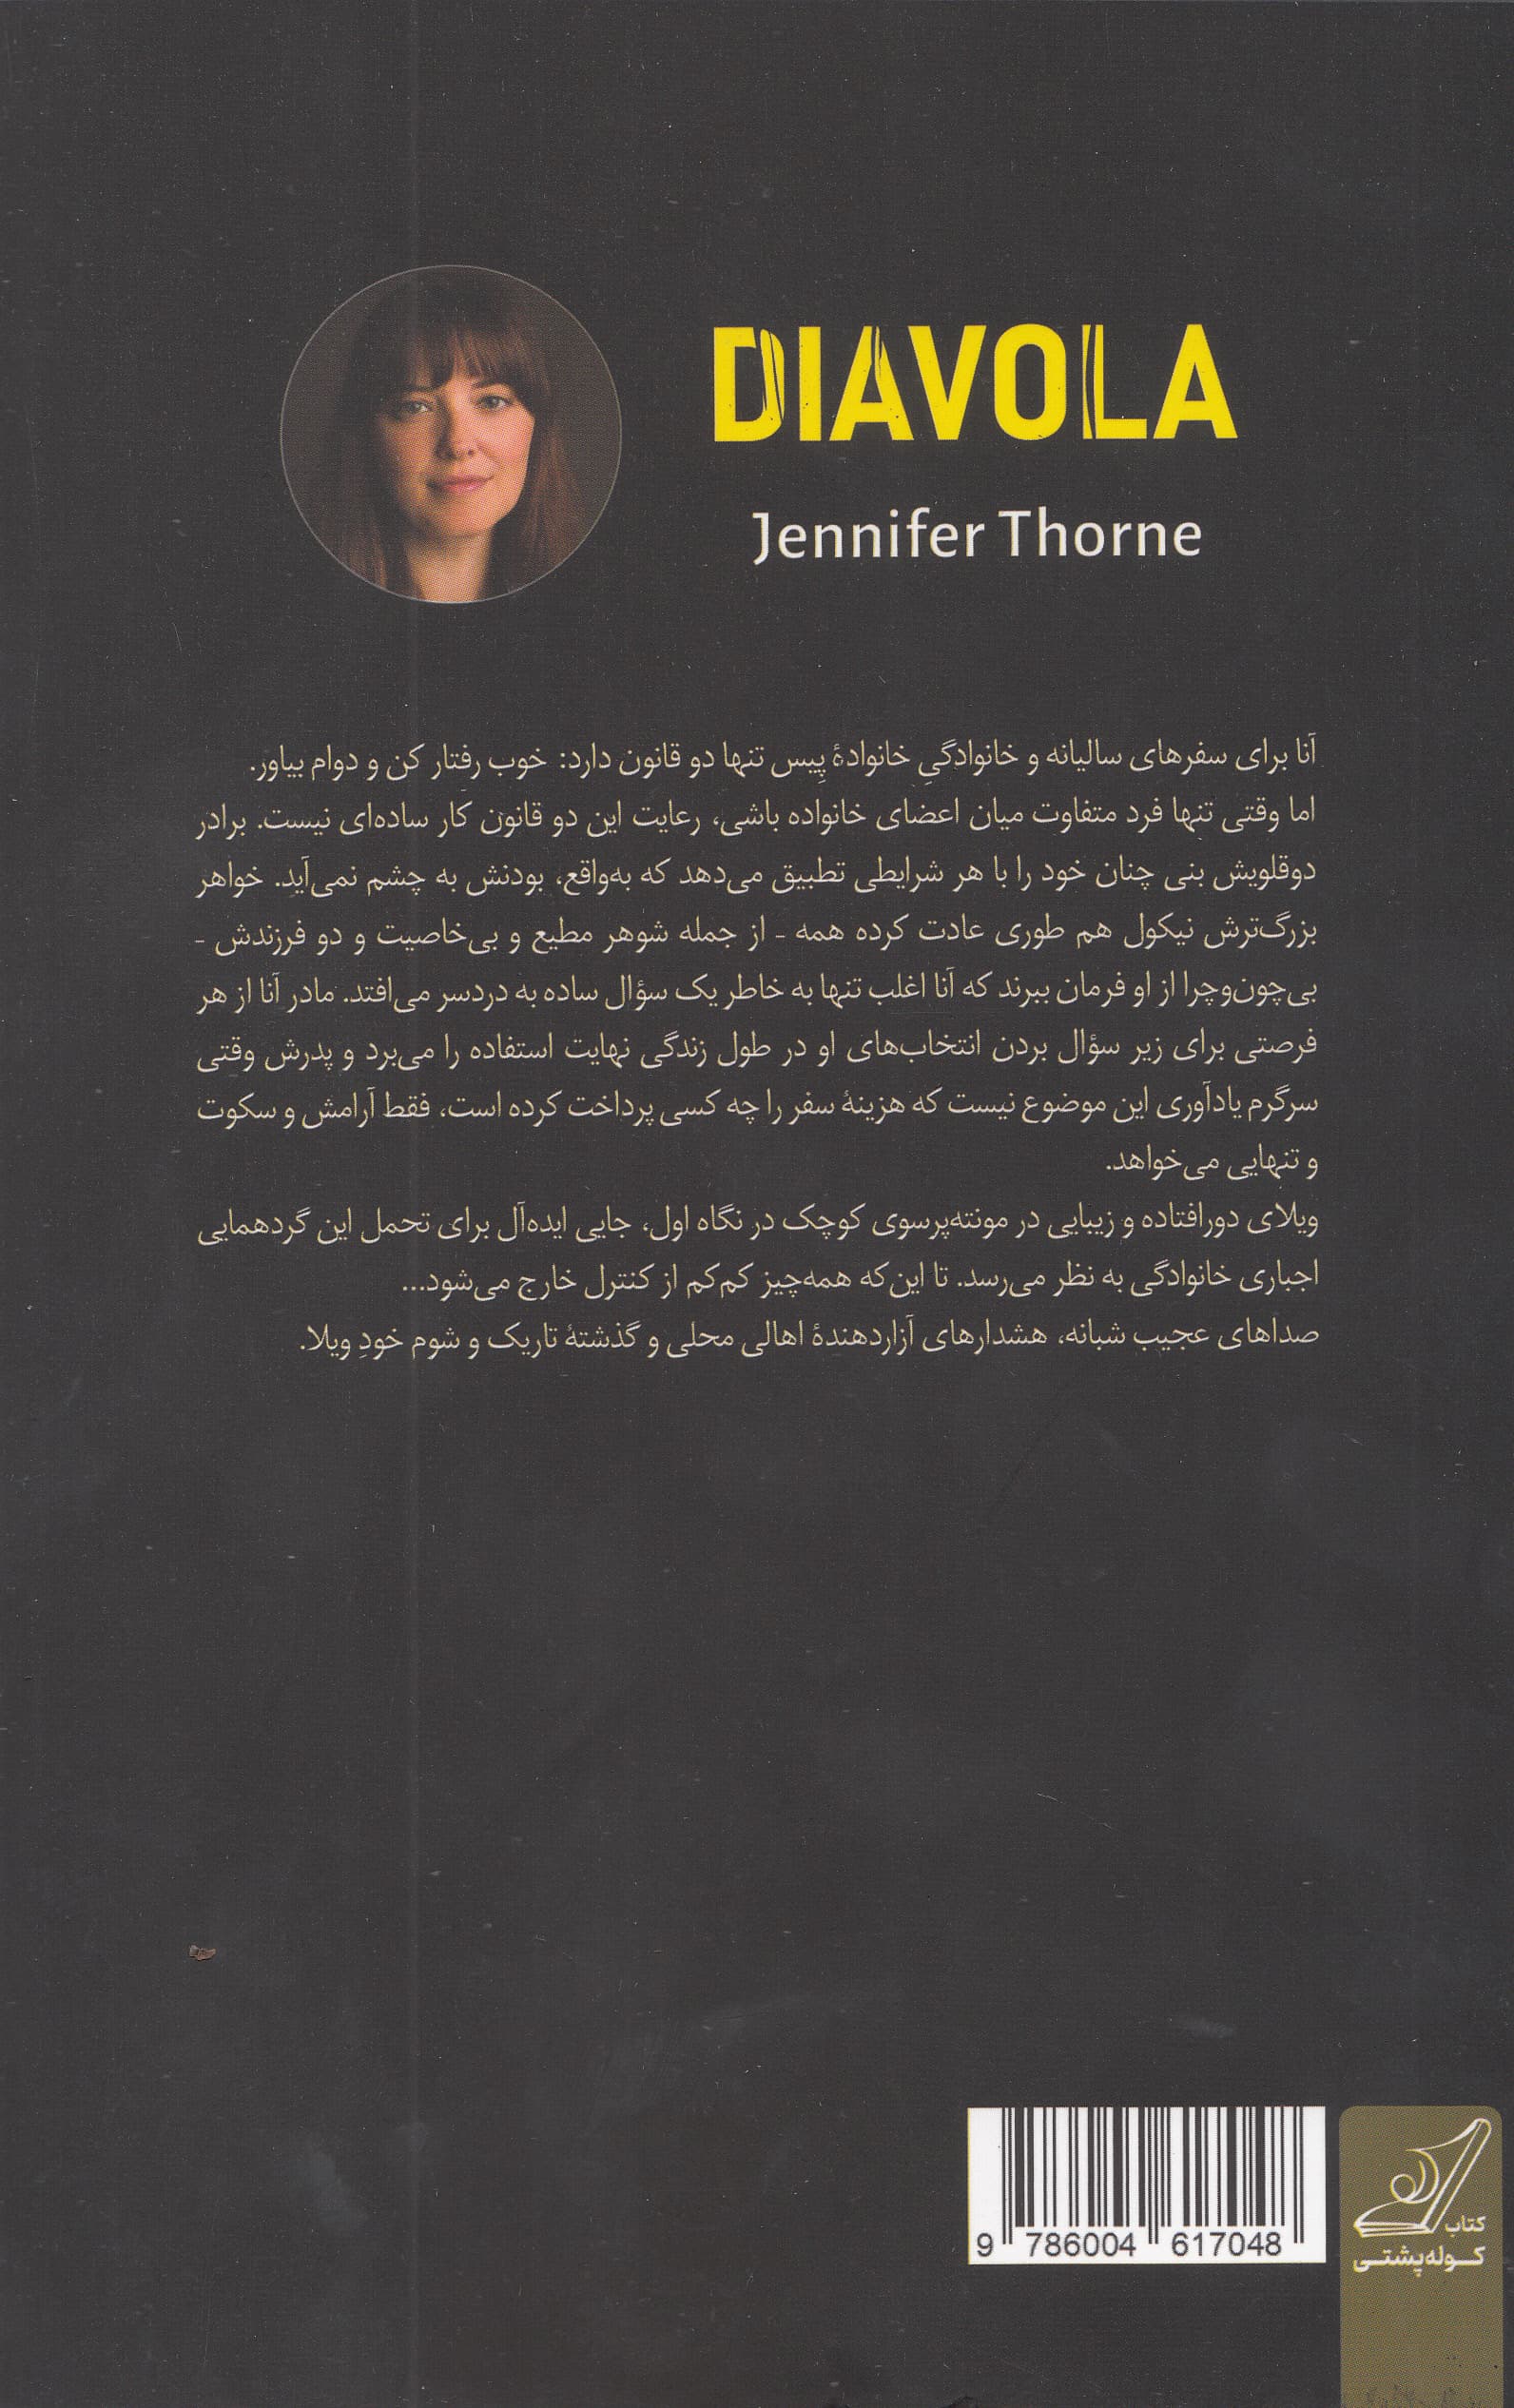 DIAVOLA
Jennifer Thorne
آنا برای سفرهای سالیانه و خانوادگیِ خانوادهٔ پِیس تنها دو قانون دارد: خوب رفتار کن و دوام بیاور.
اما وقتی تنها فرد متفاوت میان اعضای خانواده باشی، رعایت این دو قانون کار ساده‌ای نیست. برادر
دوقلویش بنی چنان خود را با هر شرایطی تطبیق می‌دهد که به‌واقع، بودنش به چشم نمی‌آید. خواهر
بزرگ‌ترش نیکول هم طوری عادت کرده همه - از جمله شوهر مطیع و بی‌خاصیت و دو فرزندش -
بی‌چون‌وچرا از او فرمان ببرند که آنا اغلب تنها به خاطر یک سؤال ساده به دردسر می‌افتد. مادر آنا از هر
فرصتی برای زیر سؤال بردن انتخاب‌های او در طول زندگی نهایت استفاده را می‌برد و پدرش وقتی
سرگرم یادآوری این موضوع نیست که هزینهٔ سفر را چه کسی پرداخت کرده است، فقط آرامش و سکوت
و تنهایی می‌خواهد.
ویلای دورافتاده و زیبایی در مونته‌پرسوی کوچک در نگاه اول، جایی ایده‌آل برای تحمل این گردهمایی
اجباری خانوادگی به نظر می‌رسد. تا این‌که همه‌چیز کم‌کم از کنترل خارج می‌شود...
صداهای عجیب شبانه، هشدارهای آزاردهندهٔ اهالی محلی و گذشتهٔ تاریک و شوم خودِ ویلا.
9 786004 617048
کتاب
کوله‌پشتی